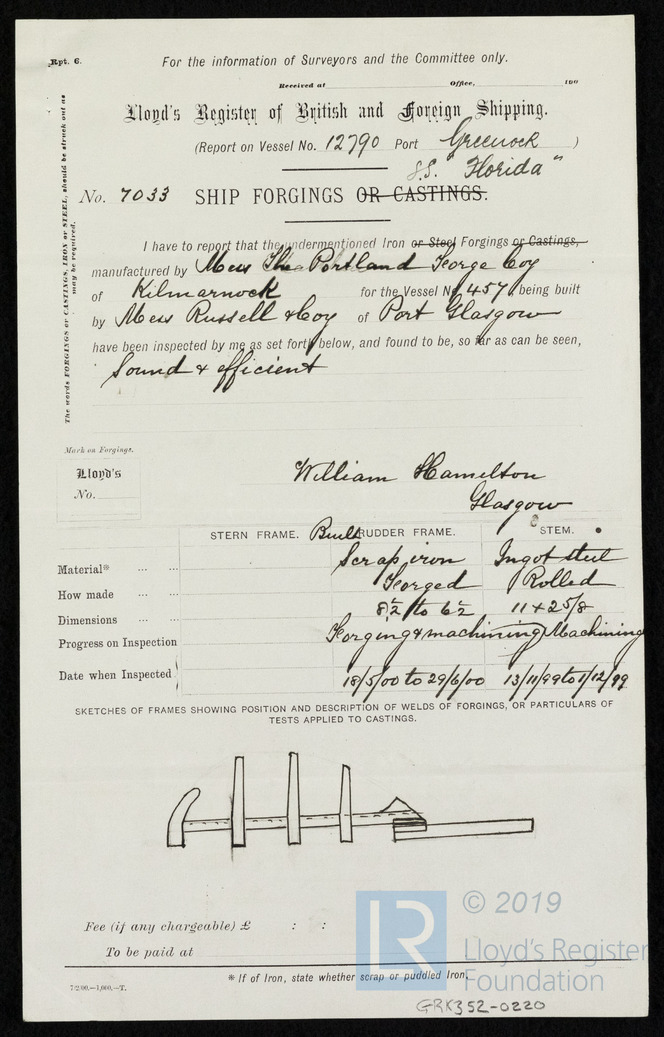 Rpt. 6.
For the information of Surveyors and the Committee only.
Received at Office, 190
Lloyd's Register of British and Foreign Shipping.
(Report on Vessel No. 12790 Port Greenock )
S.S. "Florida"
No. 7033 SHIP FORGINGS OR CASTINGS.
The words FORGINGS or CASTINGS, IRON or STEEL, should be struck out as may be required.
I have to report that the undermentioned Iron or Steel Forgings or Castings,
manufactured by Mess The Portland Forge Coy
of Kilmarnock for the Vessel No. 457, being built
by Mess Russell & Coy of Port Glasgow
have been inspected by me as set forth below, and found to be, so far as can be seen,
Sound & efficient
Mark on Forgings.
Lloyd's
No.
William Hamelton
Glasgow
STERN FRAME. Built RUDDER FRAME. STEM.
Material* Scrap iron Ingot steel
How made Forged Rolled
Dimensions 8½ to 6½ 11 x 2 5/8
Progress on Inspection Forging & machining Machining
Date when Inspected 18/5/00 to 29/6/00 13/11/99 to 1/12/99
SKETCHES OF FRAMES SHOWING POSITION AND DESCRIPTION OF WELDS OF FORGINGS, OR PARTICULARS OF
TESTS APPLIED TO CASTINGS.
Fee (if any chargeable) £ : :
To be paid at
* If of Iron, state whether scrap or puddled Iron.
7/2/00.—1,000.—T.
GRK352-0220
LR
© 2019
Lloyd's Register
Foundation